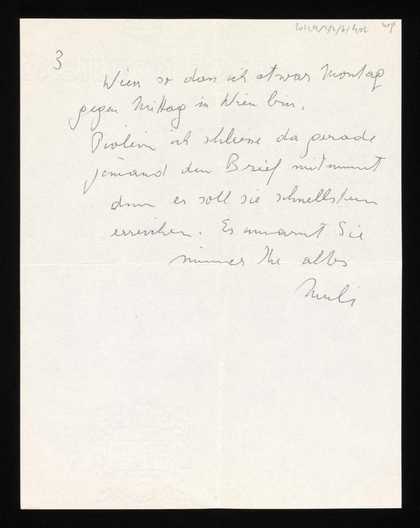 3
Wien so dass ich etwas Montag
gegen Mittag in Wien bin.
ich schliesse da gerade
jemand den Brief mitnimmt
denn er soll sie schnellstens
erreichen. Es umarmt Sie
immer Ihr altes